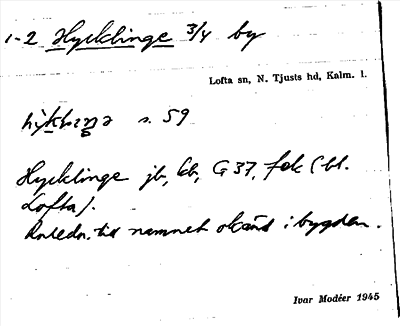 1-2 Hycklinge 3/4 by
Lofta sn, N. Tjusts hd, Kalm. l.
s. 59
Hycklinge jb, kb, G 37, fek (bl.
Lofta).
Anledn. till namnet okänd i bygden.
Ivar Modéer 1945